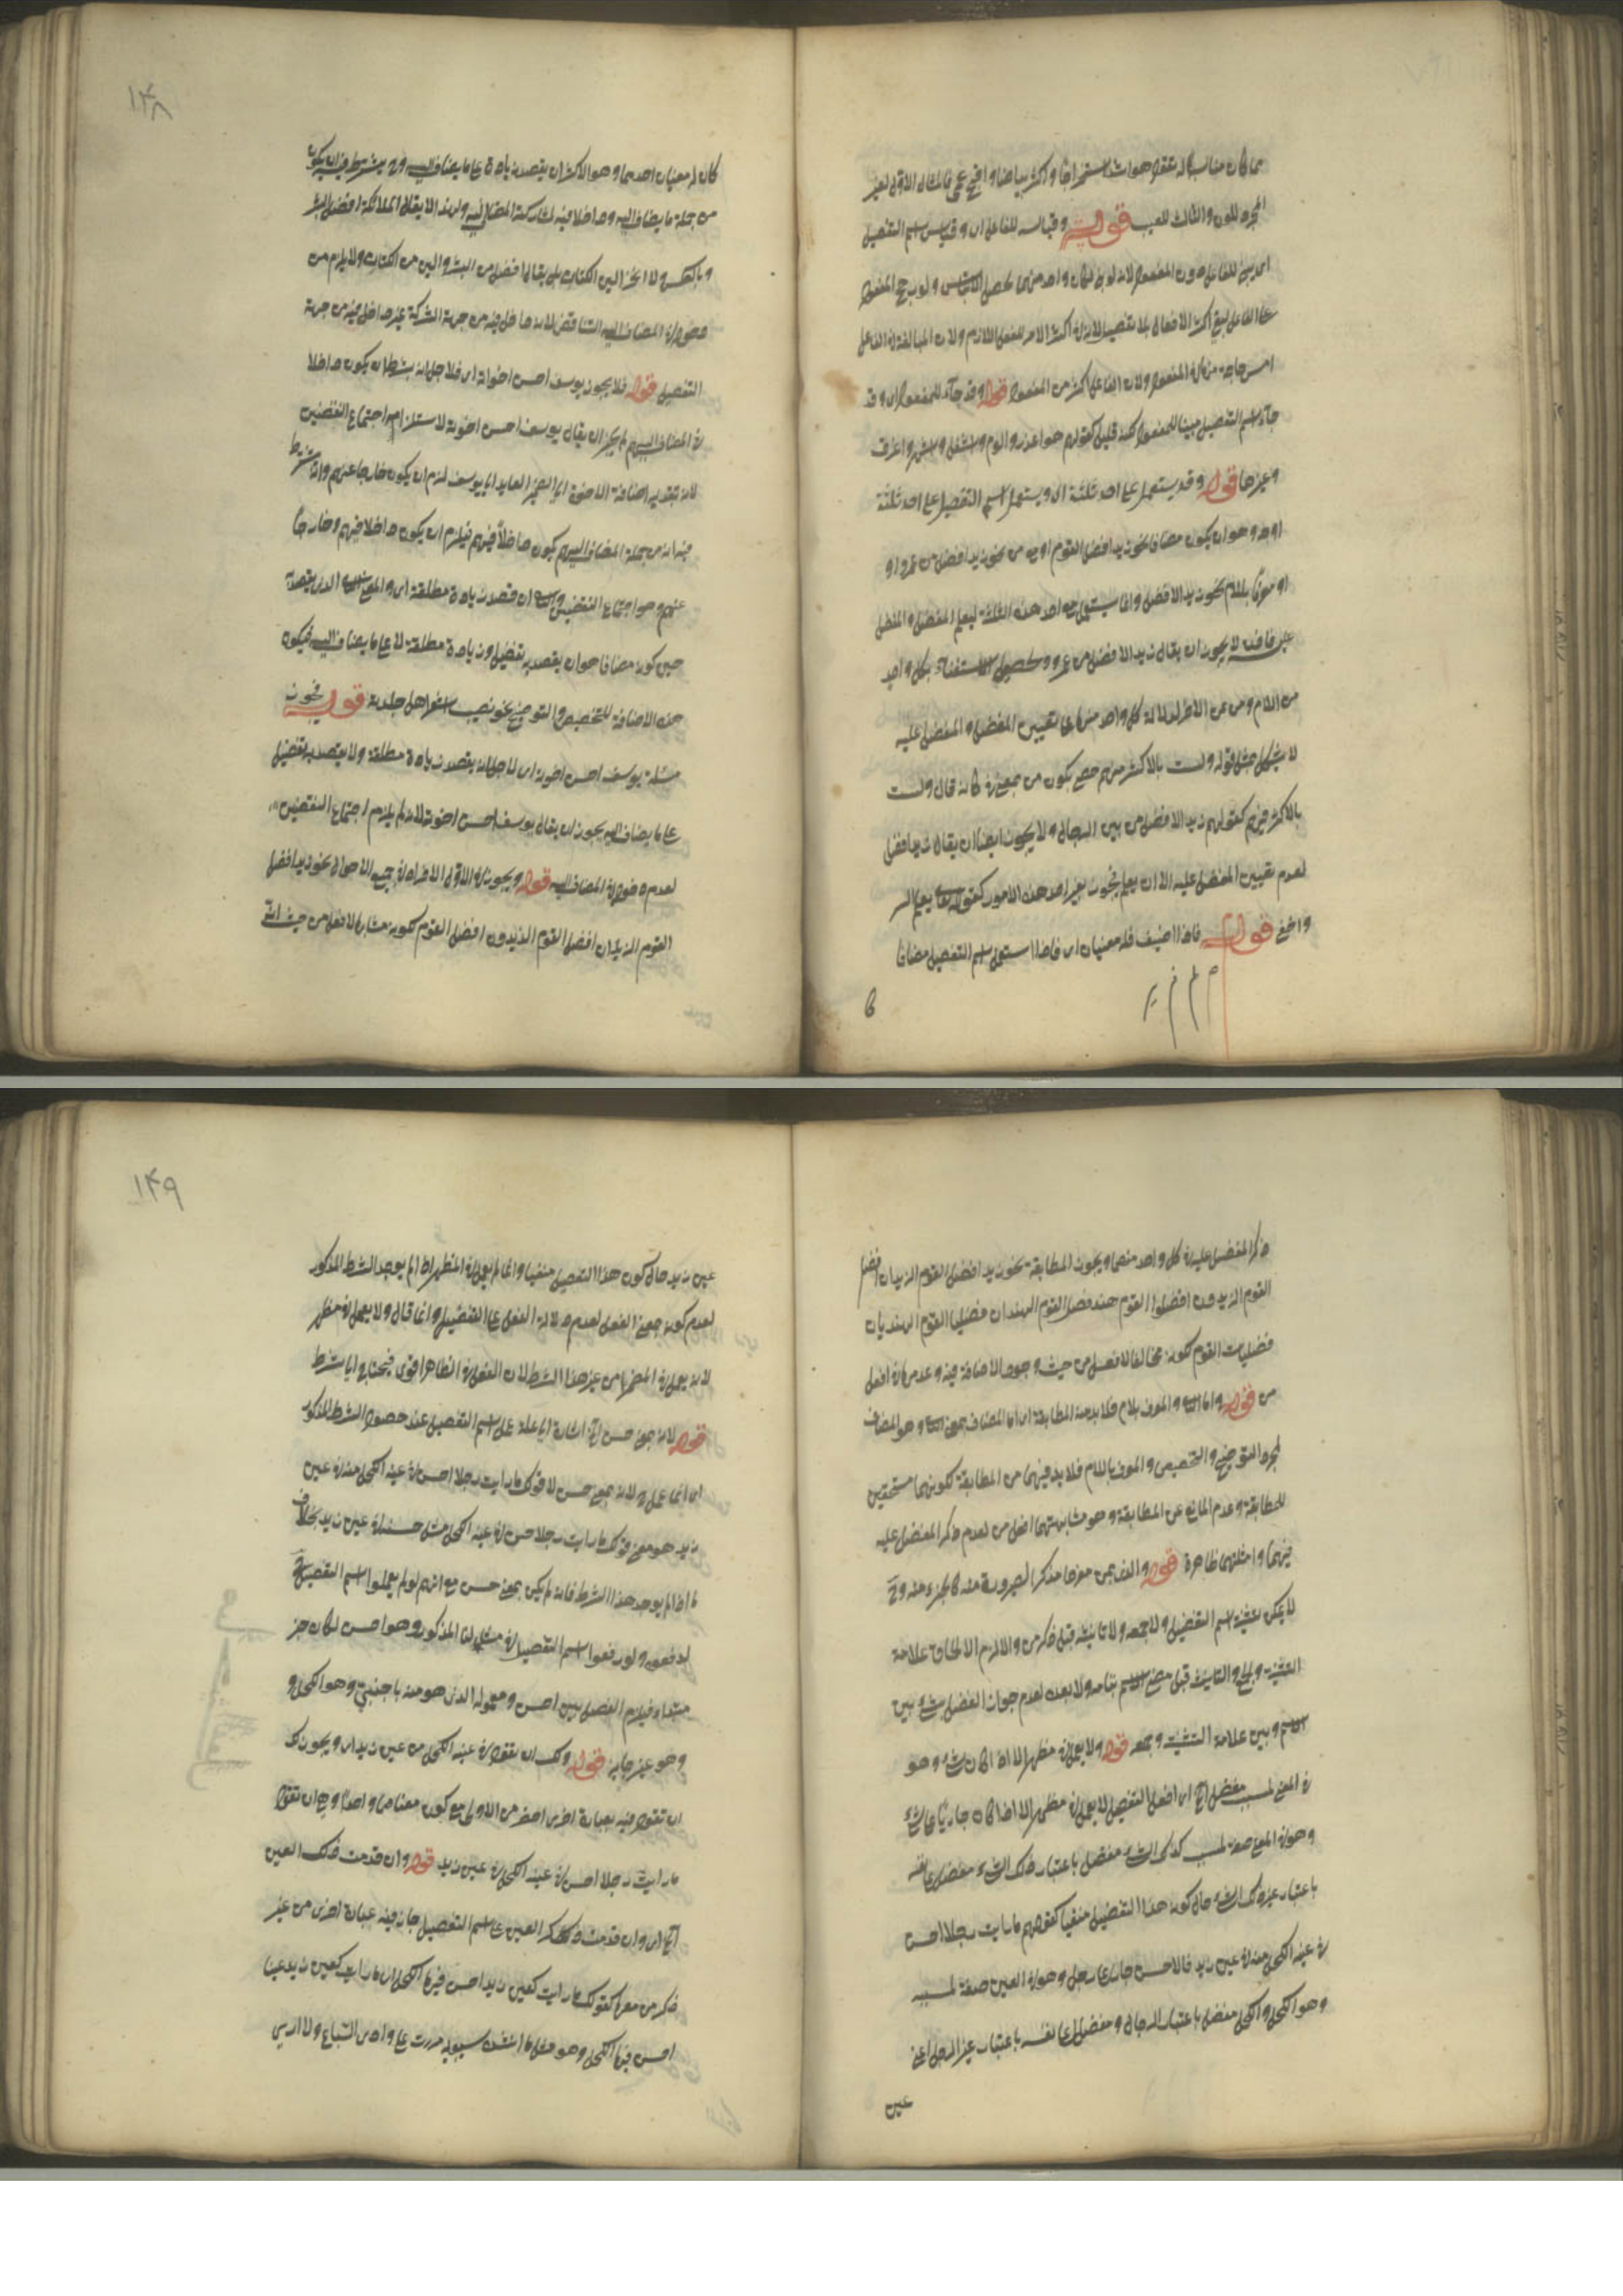 مما كان مناسبا له تقول هو اشد استخراجا واكثر بياضا واقبح عمى فالمثال الاول لغير
المجرد للون والثالث للعيب قوله وقياسه للفاعل اى وقياس اسم التفضيل
ان يبنى للفاعل دون المفعول لانه لو بنى لكان واحد منهما يحصل الالتباس ولو رجح المفعول
على الفاعل لبقى اكثر الافعال بلا تفضيل لان اكثر للفعل اللازم ولان المبالغة فى الفاعل
امس حاجة منها فى المفعول ولان الفاعل اكثر من المفعول قوله وقد جاء للمفعول اى وقد
جاء اسم التفضيل مبنيا للمفعول لكنه قليل كقولهم هو اعذر والوم واشغل واشهر واعرف
وغيرها قوله وقد يستعمل على احد ثلثة اى ويستعمل اسم التفضيل على احد ثلثة
اوجه وهو ان يكون مضافا نحو زيد افضل القوم او من نحو زيد افضل من عمرو او
او معرفا باللام نحو زيد الافضل وانما يستعمل على احد هذه الثلثة ليعلم المفضل والمفضل
عليه فانه لا يجوز ان يقال زيد الافضل من عمرو لحصول الاستغناء بكل واحد
من اللام ومن عن الآخر لدلالة كل واحد منهما على تعيين المفضل والمفضل عليه
لا يشكل بمثل قوله ولست بالاكثر منهم حصى بكون من بمعنى فى كانه قال ولست
بالاكثر فيهم كقولهم زيد الافضل من بين الرجال ولا يجوز ايضا ان يقال زيد افضل
لعدم تعيين المفضل عليه الا ان يعلم فيجوز بغير احد هذه الامور كقوله تعا يعلم السر
واخفى قوله فاذا اضيف فله معنيان اى فاذا استعمل اسم التفضيل مضافا
١٤٨
كان له معنيان احدهما وهو الاكثر ان يقصد زيادة على ما يضاف اليه ويشترط فيه ان يكون
من جملة ما يضاف اليه وداخلا فيه لمشاركة المضاف اليه ولهذا لا يقال الملائكة افضل البشر
وبالعكس ولا الخز الين الكتان بل يقال افضل من البشر والين من الكتان ولا يلزم من
دخوله فى المضاف اليه التناقض لانه داخل فيه من جهة الشركة غير داخل فيه من جهة
التفضيل قوله فلا يجوز يوسف احسن اخوته اى فلاجل انه يشترط ان يكون داخلا
فى المضاف اليهم لم يجز ان يقال يوسف احسن اخوته لاستلزامه اجتماع النقيضين
لان بتقدير اضافة الاخوة الى الضمير العايد الى يوسف لزم ان يكون خارجا عنهم
فيه انه من جملة المضاف اليهم يكون داخلا فيهم فيلزم ان يكون داخلا فيهم وخارجا
عنهم وهو اجتماع النقيضين والثانى ان تقصد زيادة مطلقة اى والمعنى الثانى الذى يقصد
حين كونه مضافا هو ان يقصد به تفضيل وزيادة مطلقة لا على ما يضاف اليه فيكون
هذه الاضافة للتخصيص والتوضيح نحو نصيب اشعر اهل جلدته قوله فيجوز
مسئلة يوسف احسن اخوته اى لاجل انه يقصد زيادة مطلقة ولا يقصد به تفضيل
على ما يضاف اليه يجوز ان يقال يوسف احسن اخوته لانه لم يلزم اجتماع النقيضين
لعدم دخوله فى المضاف اليه قوله ويجوز فى الاول الافراد فى جميع الاحوال نحو زيد افضل
القوم الزيدان افضل القوم الزيدون افضل القوم لكونه مشابها لافعل من حيث انه
ذكر المفضل عليه فى كل واحد منهما ويجوز المطابقة نحو زيد افضل القوم الزيدان افضلا
القوم الزيدون افضلوا القوم هند فضلى القوم الهندان فضليا القوم الهنديات
فضليات القوم لكونه مخالفا لافعل من حيث وجود الاضافة فيه وعدمها فى افعل
من قوله واما الثانى والمعرف بلام فلا بد من المطابقة اى اما المضاف بمعنى الثانى وهو المضاف
لمجرد التوضيح والتخصيص والمعرف باللام فلا بد فيهما من المطابقة لكونهما مستحقين
للمطابقة وعدم المانع عن المطابقة وهو مشابهتهما افعل من لعدم ذكر المفضل عليه
فيهما وامثلتهما ظاهرة قوله والذى بمن مفرد مذكر لصيرورة منه كالجزء منه وح
لا يمكن تثنية اسم التفضيل ولا جمعه ولا تانيثه قبل ذكر من والا لزم الحاق علامة
التثنية والجمع والتانيث قبل مضى الاسم بتمامه ولا بعده لعدم جواز الفصل بشئ بين
الاسم وبين علامة التثنية وجمعه قوله ولا يعمل فى مظهر الا اذا كان لشئ وهو
فى المعنى لمسبب مفضل الخ اى افعل التفضيل لا يعمل فى مظهر الا اذا كان جاريا على شئ
وهو فى المعنى صفة لمسبب كذلك الشئ مفضل باعتبار ذلك الشئ مفضل على نفسه
باعتبار غير ذلك الشئ حال كون هذا التفضيل منفيا كقولهم ما رايت رجلا احسن
فى عينه الكحل منه فى عين زيد فالاحسن جار على رجل وهو فى العين صفة لمسببه
وهو الكحل والكحل مفضل باعتبار الرجال ومفضل على نفسه باعتبار غير الرجل اعنى
عين
١٤٩
عين زيد حال كون هذا التفضيل منفيا وانما لم يعمل فى المظهر اذا لم يوجد الشرط المذكور
لعدم كونه بمعنى الفعل لعدم دلالة الفعل على التفضيل وانما قال ولا يعمل فى مظهر
لانه يعمل فى المضمر من غير هذا الشرط لان الفعل فى الظاهر اقوى فيحتاج الى شرط
قوله لانه بمعنى حسن الخ اشارة الى علة عمل اسم التفضيل عند حصول الشرط المذكور
اى انما عمل لانه بمعنى حسن لان قولك ما رايت رجلا احسن فى عينه الكحل منه فى عين
زيد هو معنى قولك ما رايت رجلا حسن فى عينه الكحل مثل حسنه فى عين زيد بخلاف
ما اذا لم يوجد هذا الشرط فانه لم يكن بمعنى حسن مع انهم لو لم يعملوا اسم التفضيل
لرفعوه ولو رفعوا اسم التفضيل فى مثالنا المذكور وهو احسن لكان خبر
مبتداء فيلزم الفصل بين احسن ومعموله الذى هو منه باجنبى وهو الكحل
وهو غير جايز قوله ولك ان تقول فى عينه الكحل من عين زيد اى ويجوز لك
ان تقول فيه بعبارة اخرى اخصر من الاولى مع كون معناهما واحدا وهى ان تقول
ما رايت رجلا احسن فى عينه الكحل فى عين زيد قوله وان قدمت ذلك العين
الخ اى وان قدمت ذكر العين على اسم التفضيل جاز فيه عبارة اخرى من غير
ذكر من معها كقولك ما رايت كعين زيد احسن فيها الكحل اى ما رايت كعين زيد عينا
احسن فيها الكحل وهو مثل ما انشده سيبويه مررت على وادى السباع ولا ارى